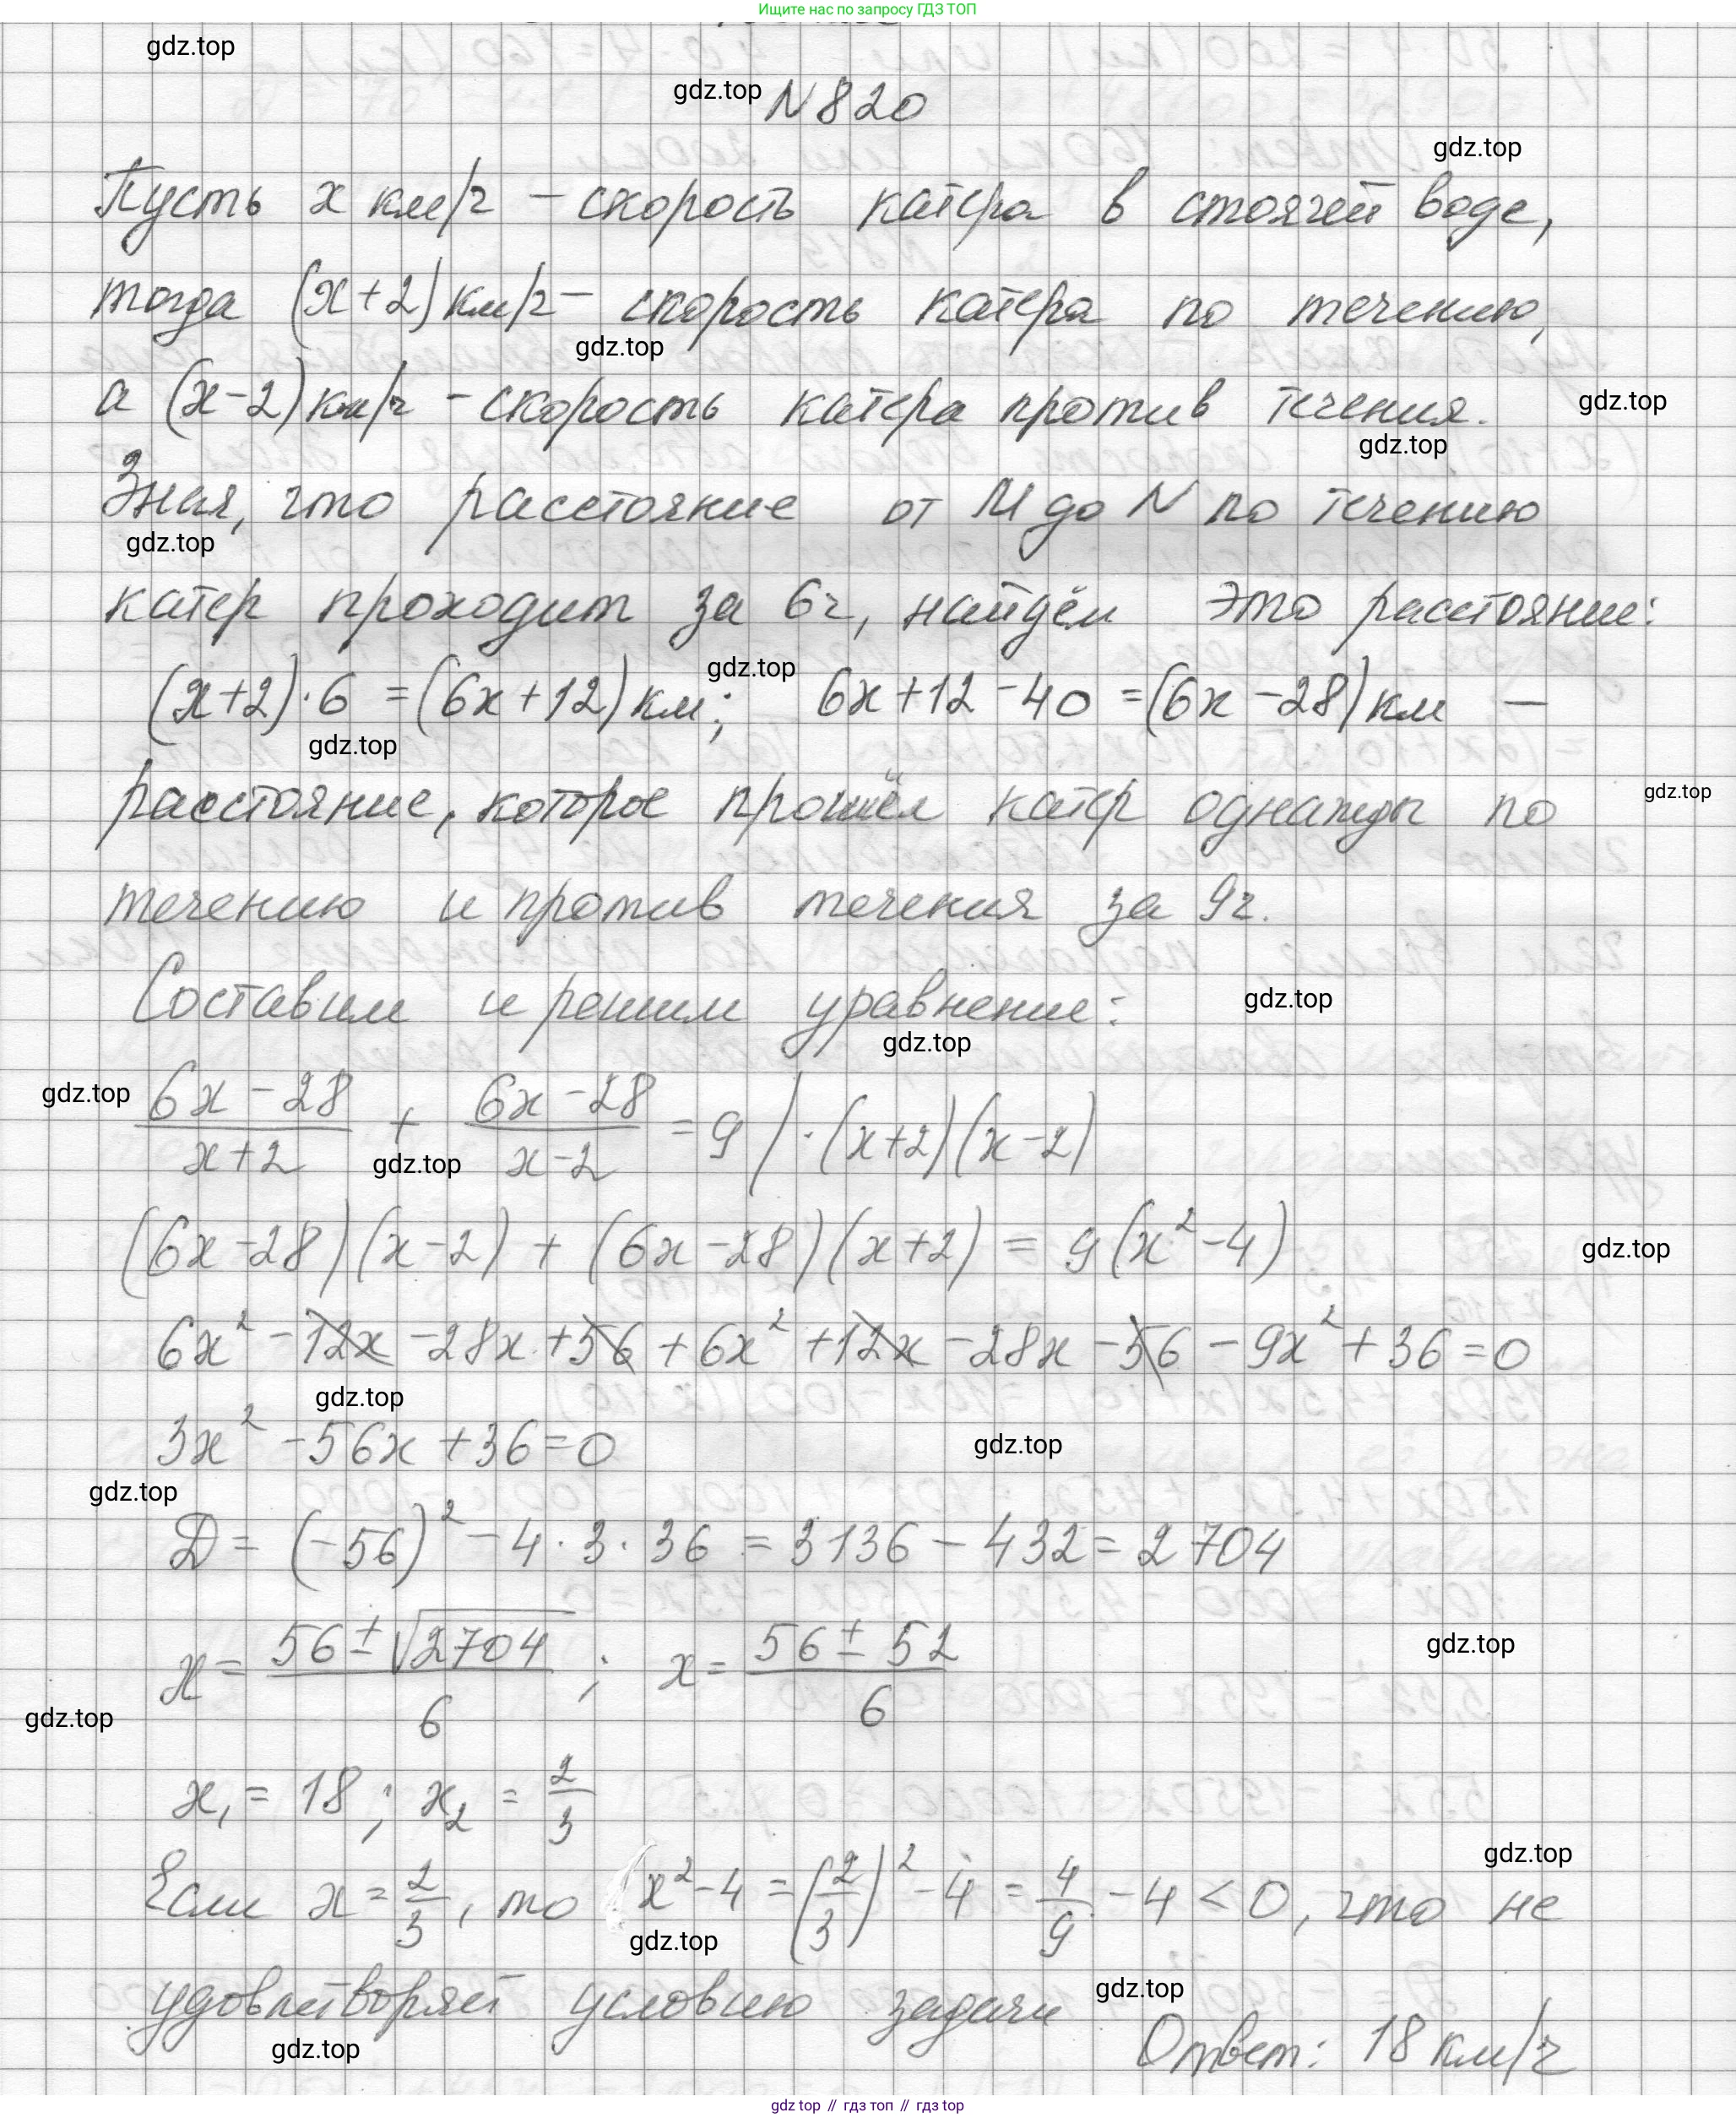 Ищите нас по запросу ГДЗ ТОП
gdz.top
gdz.top N 820
gdz.top
Пусть x км/ч – скорость катера в стоячей воде,
тогда (x+2) км/ч – скорость катера по течению,
gdz.top
а (x-2) км/ч – скорость катера против течения.
gdz.top
gdz.top
Зная, что расстояние от M до N по течению
gdz.top
катер проходит за 6ч, найдём это расстояние:
gdz.top
(x+2)·6 = (6x+12) км; 6x+12-40 = (6x-28) км –
gdz.top
расстояние, которое прошёл катер однажды по
gdz.top
течению и против течения за 9ч.
Составим и решим уравнение:
gdz.top
gdz.top
gdz.top
(6x-28)/(x+2) + (6x-28)/(x-2) = 9 | ·(x+2)(x-2)
gdz.top
(6x-28)(x-2) + (6x-28)(x+2) = 9(x²-4)
gdz.top
6x² - 12x - 28x + 56 + 6x² + 12x - 28x - 56 - 9x² + 36 = 0
gdz.top
3x² - 56x + 36 = 0
gdz.top
gdz.top
D = (-56)² - 4·3·36 = 3136 - 432 = 2704
x = (56 ± √2704)/6 ; x = (56 ± 52)/6
gdz.top
gdz.top
x₁ = 18 ; x₂ = 2/3
gdz.top
Если x = 2/3, то x²-4 = (2/3)² - 4 = 4/9 - 4 < 0, что не
gdz.top
удовлетворяет условию задачи
gdz.top
gdz.top
Ответ: 18 км/ч
gdz top // гдз топ // гдз top